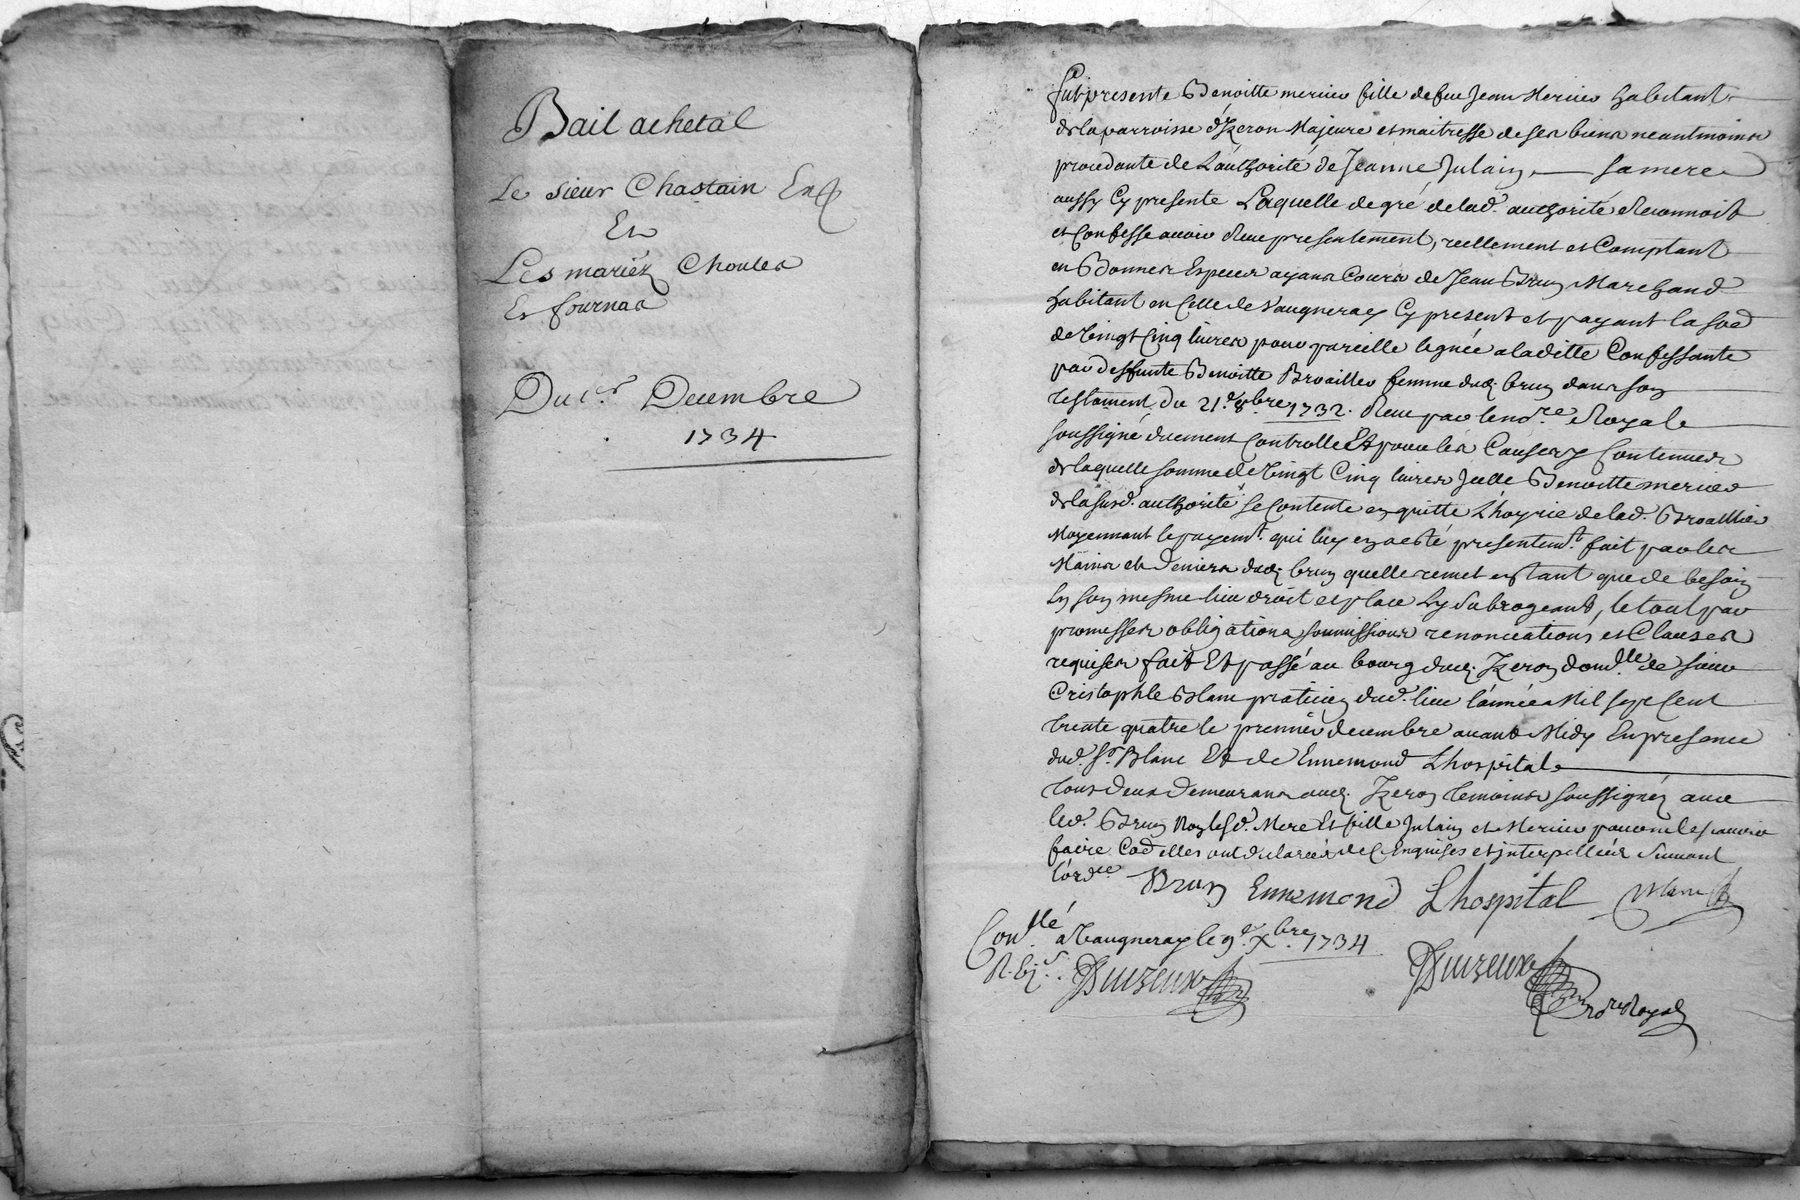 Bail a chetal
Le sieur Chastain
Et
Les mariéz Chouler
Et fournas
Du 1er Decembre
1734
fut presente Benoitte mercier fille de feu Jean Mercier habitant
de la parroisse d'Izeron Majeure et maitresse de ses biens neantmoins
procedante de L'authorité de Jeanne Julain sa mere
aussy Cy presente Laquelle de gré de lad. authorité Reconnoist
et Confesse avoir Reçu presentement, reellement et Comptant
en Bonnes Especes ayans Cours de Jean Brun Marchand
habitant en Celle de Vaugneray Cy present et payant la so'e
de Vingt Cinq livres pour pareille leguée a laditte Confessante
par deffunte Benoitte Broaillier femme dud. brun dans son
testament du 21.e 8.bre 1732. Reçu par le no.re Royal
soussigné duement Controllé Et pour les Causes y Contenues
de laquelle somme de Vingt Cinq livres Jcelle Benoitte mercier
de la susd. authorité se Contente en quitte L'hoyrie de lad. Broaillier
Moyennant le payem.t qui luy en a esté presentem.t fait par les
Mains et Deniers dud. brun quelle remet en tant que de besoin
En son mesme lieu droit et place L'y Subrogeant, le tout par
promesses obligations soumissions renonciations et Clauses
requises fait Et passé au bourg dud. Izeron dom.lle de sieur
Cristophle Blanc praticien dud. lieu l'année Mil sept Cent
trente quatre le premier decembre avant Midy En presence
dud. S.r Blanc Et de Ennemond Lhospital
tous deux demeurans aud. Izeron temoins soussignéz avec
led. Brun Non lesd. Mere Et fille Julain et Mercier pour ne le scavoir
faire Co'e elles ont declaréés de Ce enquises et interpelléés Suivant
l'ord.ce
Brun Ennemond Lhospital Blanc
Con.llé a Vaugneray le 9.e X.bre 1734
R. 6 s.
Duizeux Duizeux
no.re Royal